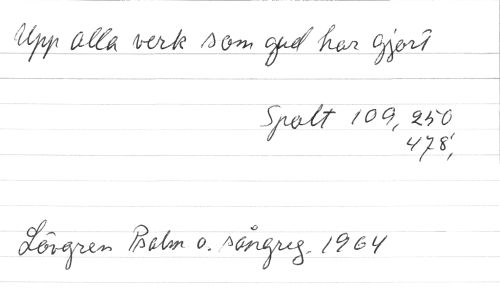 Upp alla verk som gud har gjort
Spalt 109, 250
478,
Lövgren Psalm o. sångreg. 1964